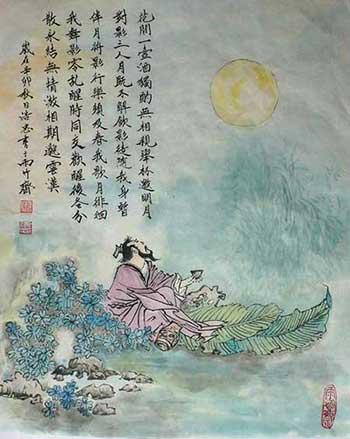 花間一壺酒獨酌無相親舉杯邀明月
對影三人月既不解飲影徒隨我身暫
伴月將影行樂須及春我歌月徘徊
我舞影零亂醒時同交歡醒後各分
散永結無情遊相期邈雲漢
歲在辛卯秋日浩忠書於雨竹齋